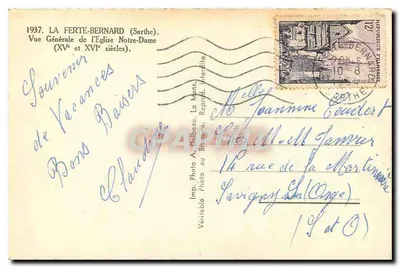 1937. LA FERTE-BERNARD (Sarthe).
Vue Générale de l'Eglise Notre-Dame
(XVe et XVIe siècles).
Souvenir
de Vacances
Bons Baisers
Claudette
Imp. Photo A. Dolbeau, Le Mans.
Véritable Photo au Bromure. Reprod. interdite.
12F
REPUBLIQUE FRANCAISE
SARTHE
Melle Jeannine Coudert
14 rue de la Martinière
Savigny S/ (Orge)
(S et O)